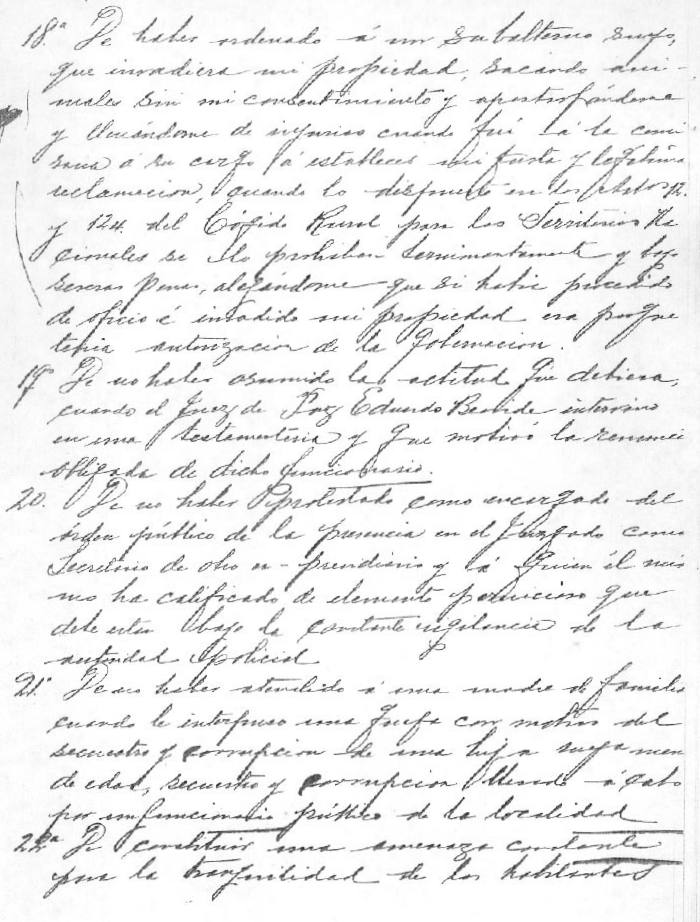 18.ª De haber ordenado á un subalterno suyo,
que invadiera mi propiedad, sacando ani-
males sin mi consentimiento y apostrofándome
y llenándome de injurias cuando fuí á la comi
saria á su cargo á establecer mi justa y legítima
reclamacion, cuando lo dispuesto en los Artos 12.
y 124. del Código Rural para los Territorios Na
cionales se lo prohiben terminantemente y bajo
severas penas, alegándome que si habia procedido
de oficio é invadido mi propiedad era porque
tenia autorizacion de la Gobernacion.
19 De no haber asumido la actitud que debiera,
cuando el Juez de Paz Eduardo intervino
en una testamenteria y que motivó la renuncia
obligada de dicho funcionario.
20. De no haber protestado como encargado del
órden público de la presencia en el Juzgado como
Secretario de otro ex-presidiario y á quien él mis
mo ha calificado de elemento pernicioso que
debe estar bajo la constante vigilancia de la
autoridad policial
21. De no haber atendido á una madre de familia
cuando le interpuso una queja con motivo del
secuestro y corrupcion de una hija suya menor
de edad, secuestro y corrupcion llevado á cabo
por un funcionario público de la localidad
22ª De constituir una amenaza constante
para la tranquilidad de los habitantes